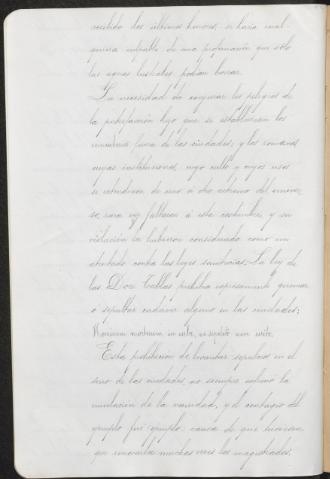 recibido los últimos honores, se hacía cual-
quiera culpable de una profanación que sólo
las aguas lustrales podían borrar.
La necesidad de conjurar los peligros de
la putrefacción hizo que se establecieran los
fuera de las ciudades; y los romanos,
cuyas instituciones, cuyo culto y cuyos usos
se extendieron de uno á otro extremo del univer-
so, rara vez faltaron á esta costumbre, y su
violación la hubieron considerado como un
atentado contra las leyes sanitarias. La ley de
las Doce Tablas prohibía expresamente quemar
o sepultar cadáver alguno en las ciudades;
Hominem mortuum in urbe, ne sepelito neve urito.
Esta prohibición de levantar sepulcros en el
seno de las ciudades, no siempre sofocó la
de la vanidad, y el contagio del
ejemplo fué causa de que tuvieran
que renovarla muchas veces los magistrados.